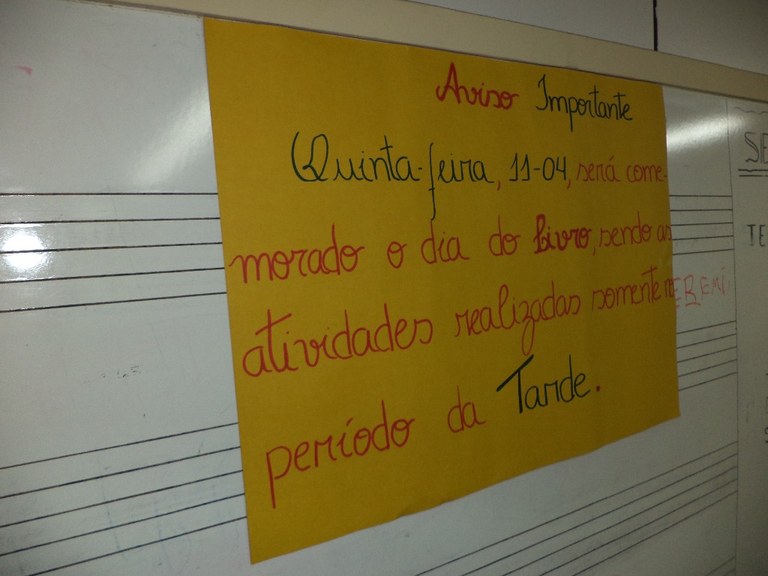 Aviso Importante
Quinta-feira, 11-04, será come-
morado o dia do Livro, sendo as
atividades realizadas somente no
período da Tarde.
SE
TE